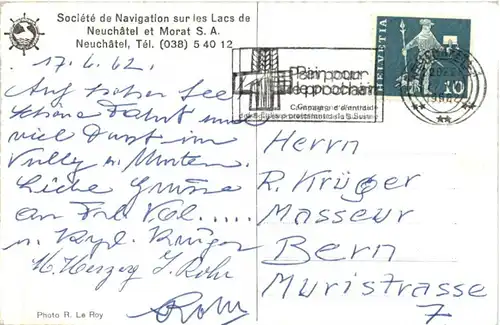 Société de Navigation sur les Lacs de
Neuchâtel et Morat S. A.
Neuchâtel, Tél. (038) 5 40 12
17. 6. 62.
Auf hoher See
schöne Fahrt und
viel Durst im
Vully u. Murten.
Liebe Grüsse
an Frl. Val.....
u. Krüger
H. Herzog J. Rohr
Rohr
Photo R. Le Roy
HELVETIA
10
Pain pour
le prochain
Herrn
R. Krüger
Masseur
Bern
Muristrasse
7